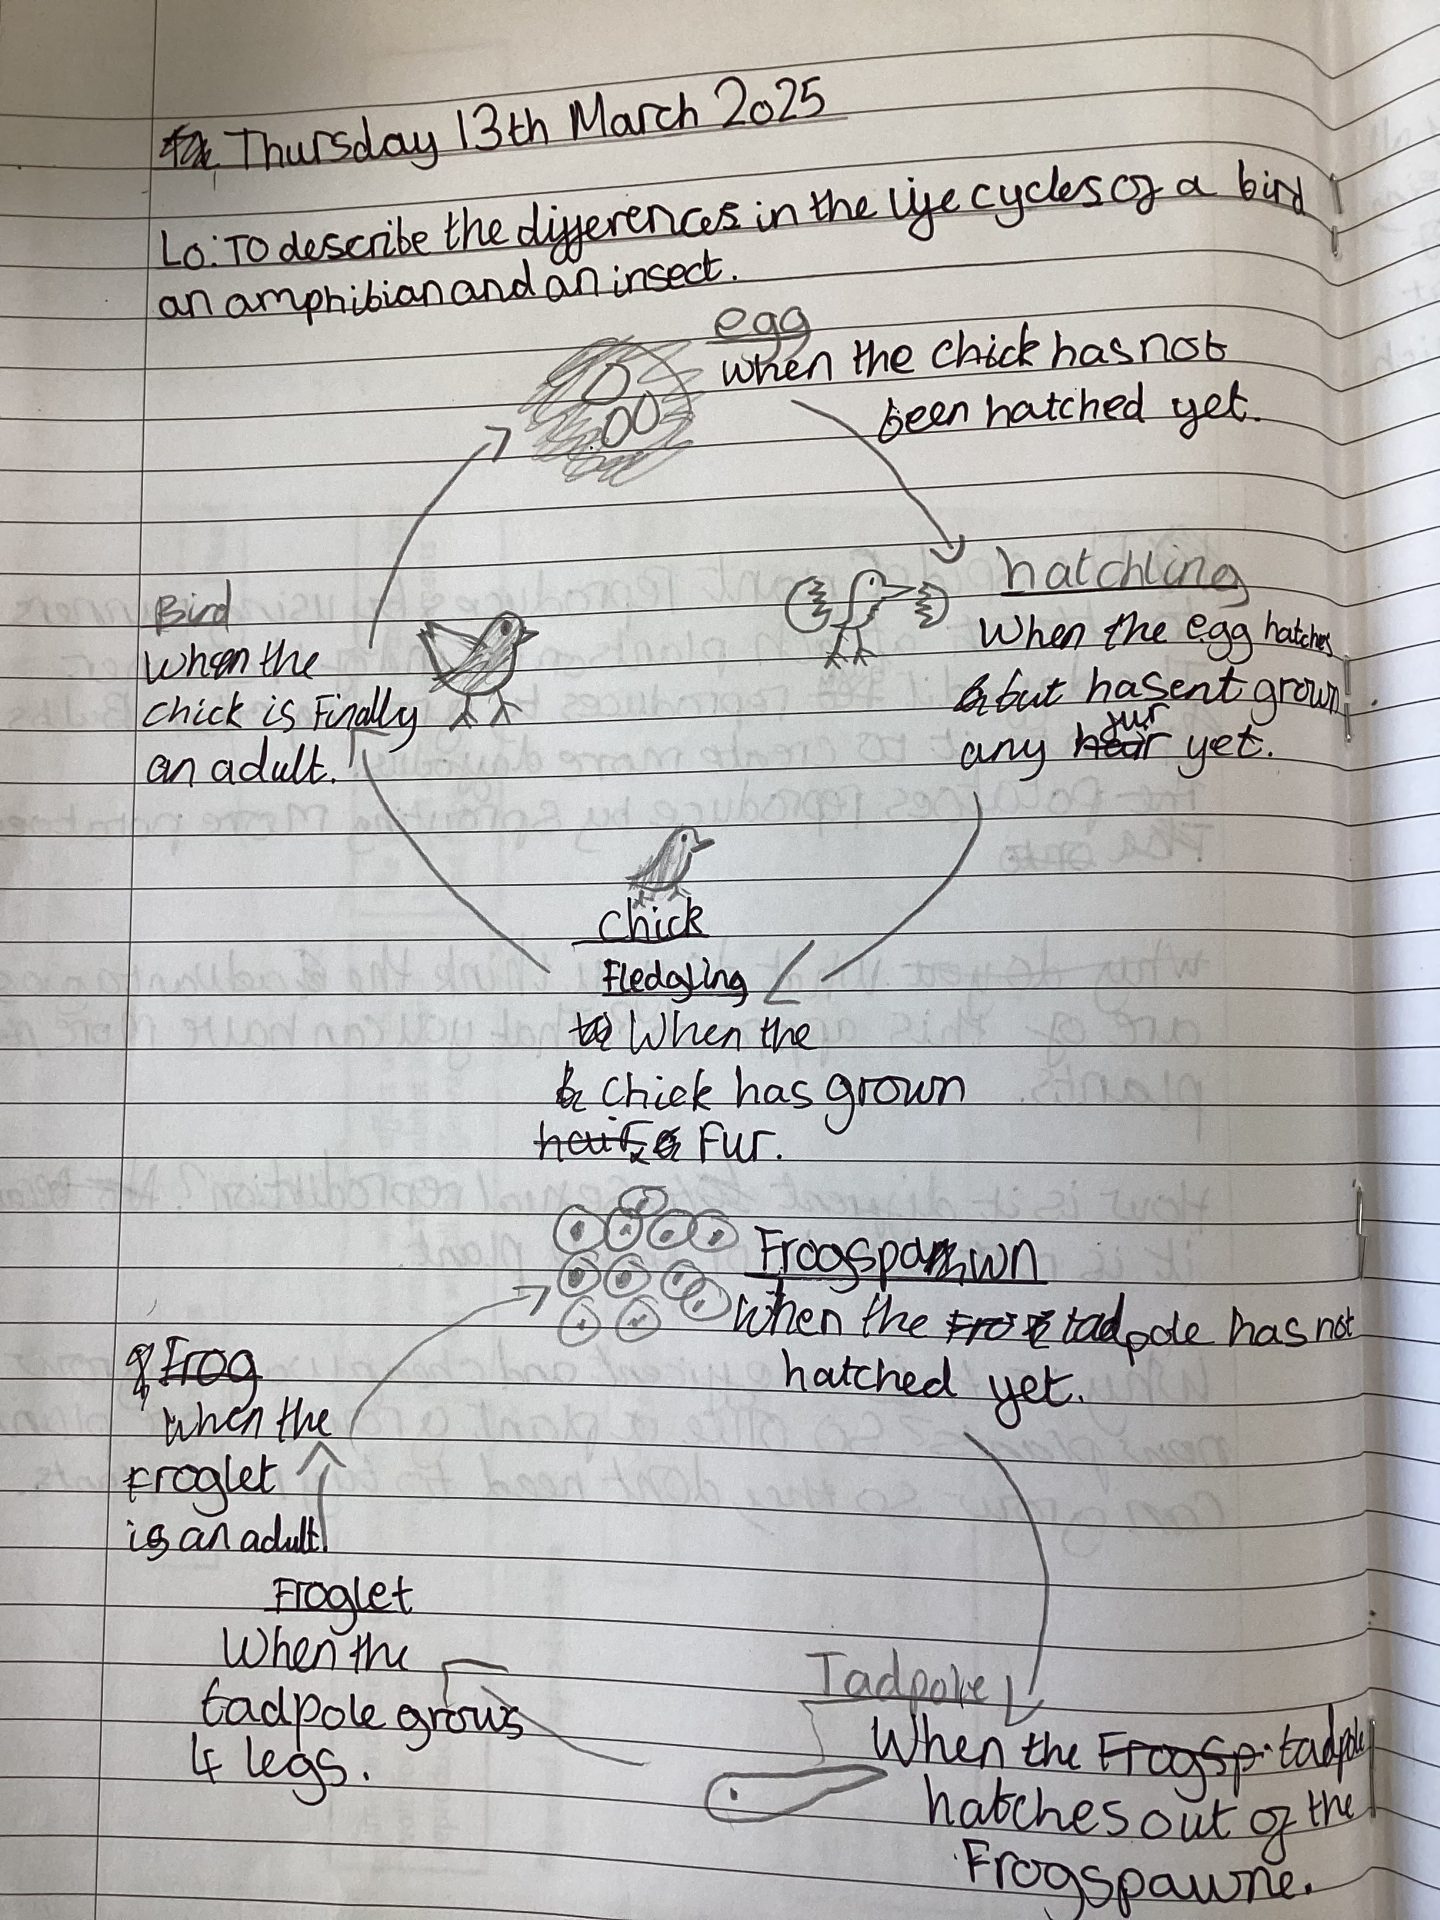 Thursday 13th March 2025
Lo: To describe the differences in the life cycles of a bird
an amphibian and an insect.
egg
when the chick has not
been hatched yet.
hatchling
When the egg hatches
but hasent grown
any fur yet.
Bird
When the
chick is Finally
an adult.
Chick
Fledgling
When the
Chick has grown
Fur.
Frogspawn
When the tadpole has not
hatched yet.
Frog
When the
Froglet
is an adult
Froglet
When the
tadpole grows
4 legs.
Tadpole
When the Frogsp tadpole
hatches out of the
Frogspawne.